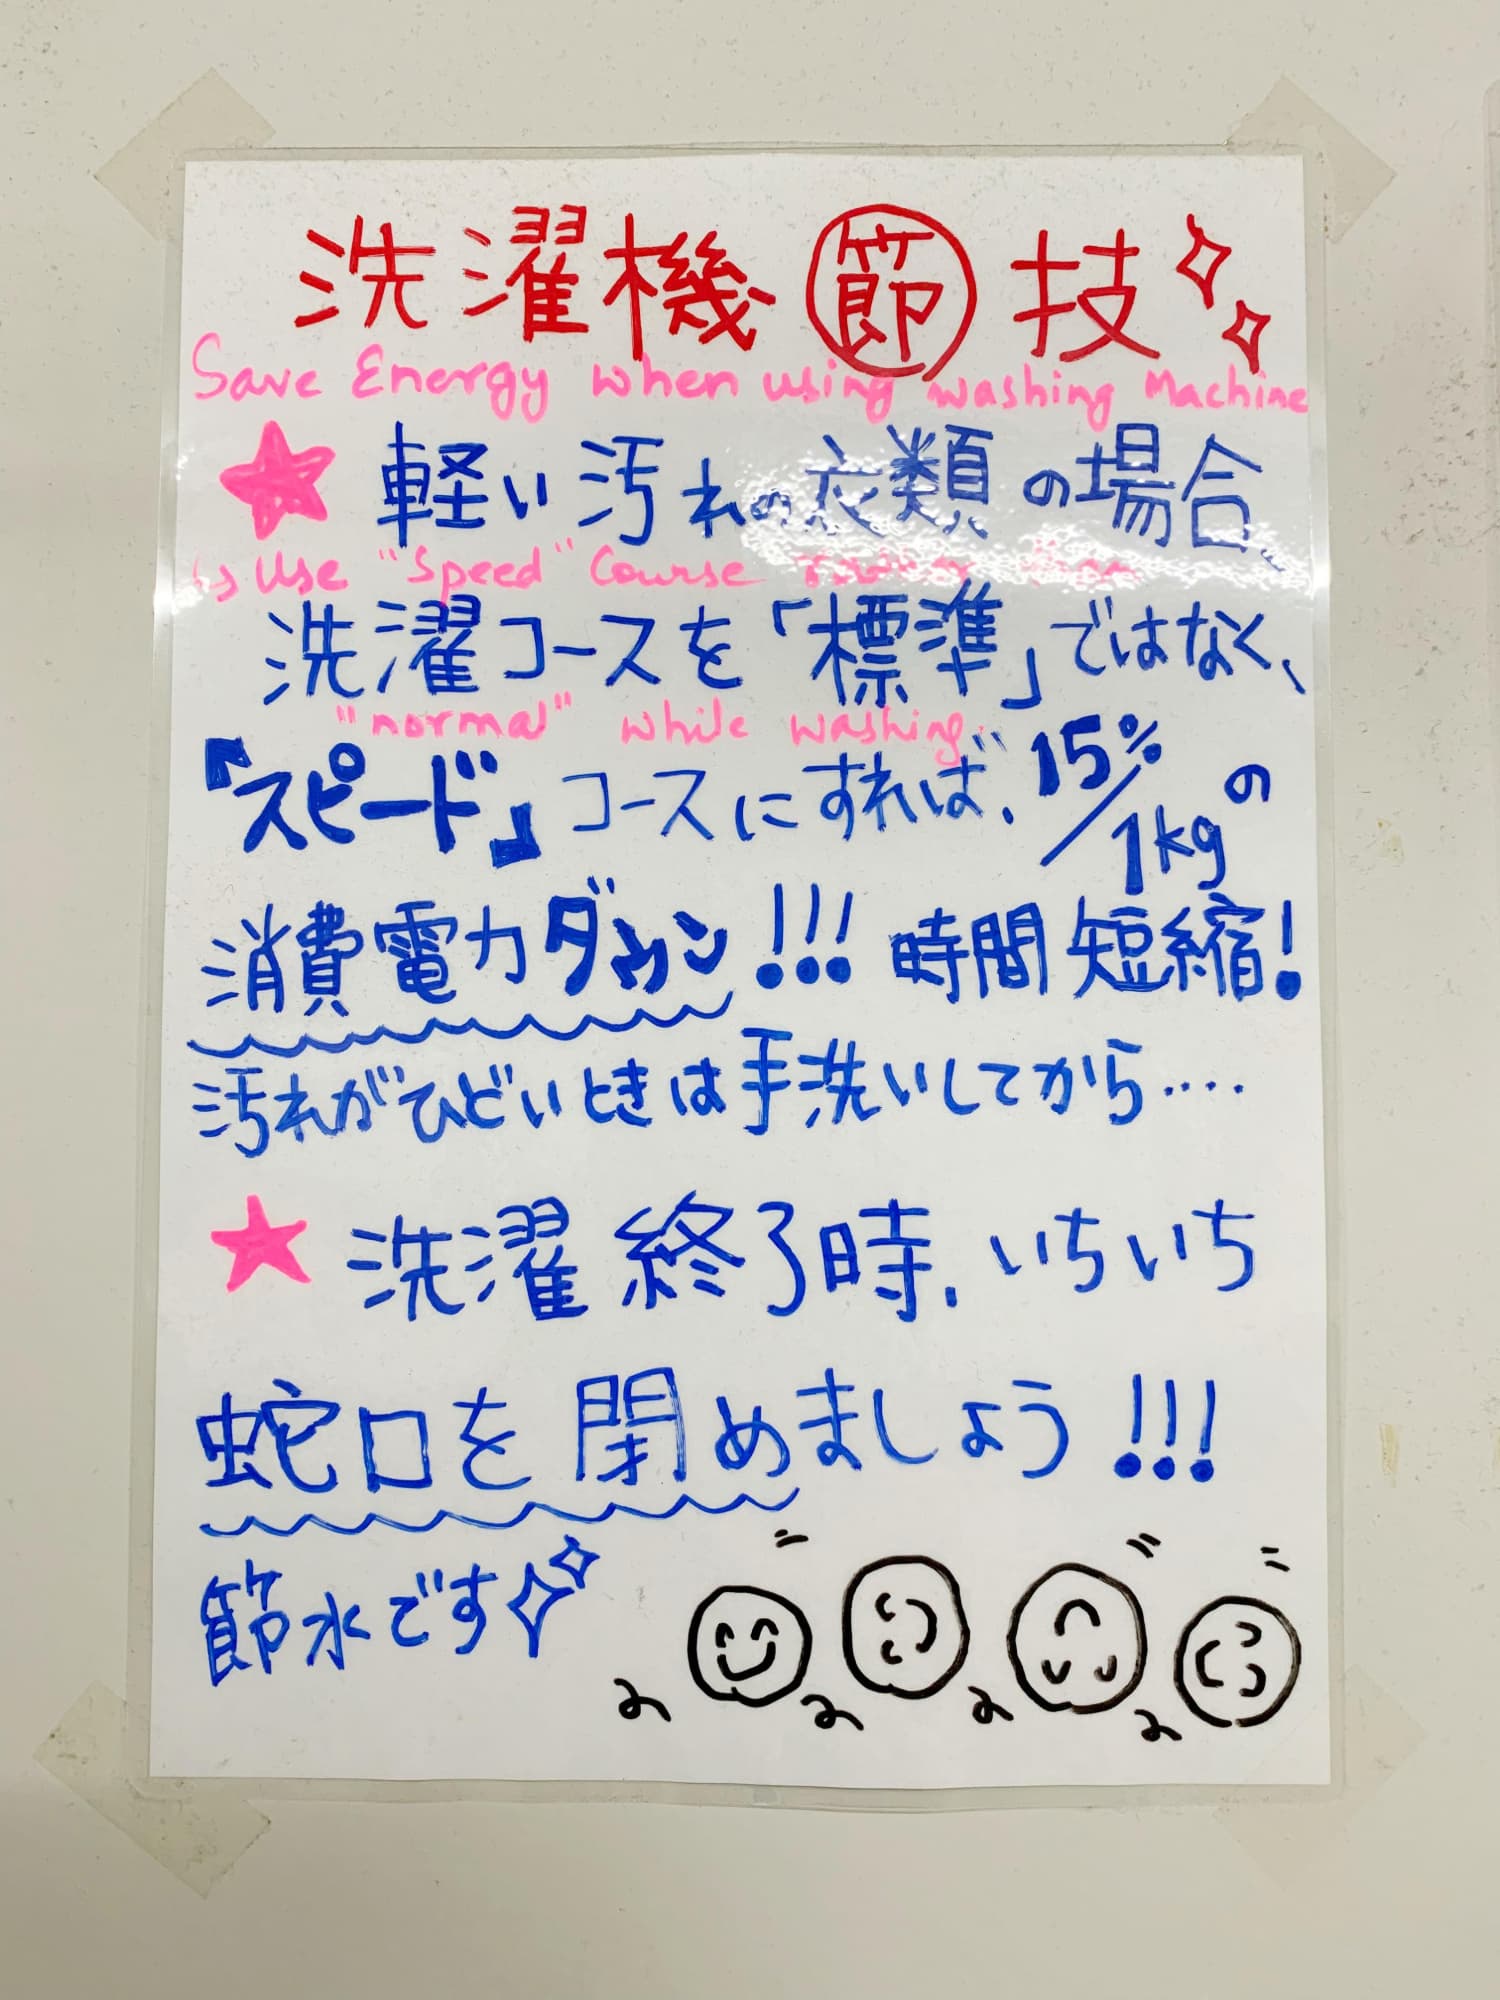 洗濯機 節 技
Save Energy when using washing Machine
★ 軽い汚れの衣類の場合
↳ Use "Speed" Course rather than
洗濯コースを「標準」ではなく、
"normal" while washing.
『スピード』コースにすれば、15%/1kgの
消費電力ダウン!!! 時間短縮!
汚れがひどいときは手洗いしてから‥‥
★ 洗濯終了時、いちいち
蛇口を閉めましょう!!!
節水です